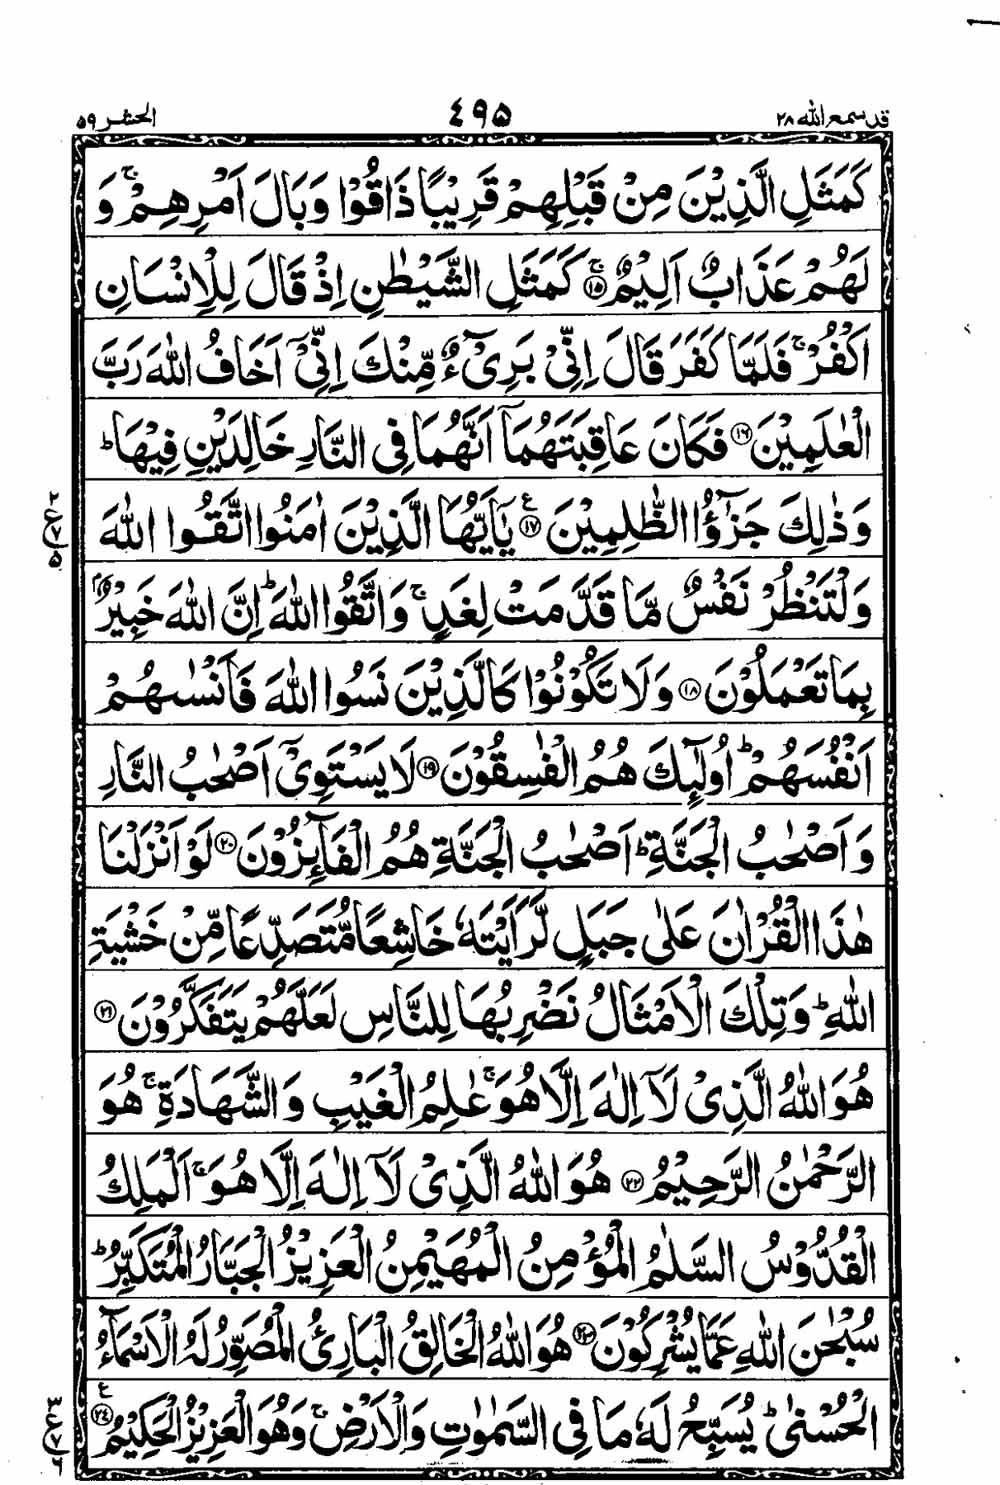 قد سمع الله ٢٨
٤٩٥
الحشر ٥٩
كَمَثَلِ الَّذِيْنَ مِنْ قَبْلِهِمْ قَرِيْبًا ذَاقُوْا وَبَالَ اَمْرِهِمْ ۚ وَ
لَهُمْ عَذَابٌ اَلِيْمٌ ۚ ﴿۱۵﴾ كَمَثَلِ الشَّيْطٰنِ اِذْ قَالَ لِلْاِنْسَانِ
اكْفُرْ ۚ فَلَمَّا كَفَرَ قَالَ اِنِّىْ بَرِىْٓءٌ مِّنْكَ اِنِّىْٓ اَخَافُ اللّٰهَ رَبَّ
الْعٰلَمِيْنَ ﴿۱۶﴾ فَكَانَ عَاقِبَتَهُمَآ اَنَّهُمَا فِى النَّارِ خَالِدَيْنِ فِيْهَا ؕ
وَذٰلِكَ جَزٰٓؤُا الظّٰلِمِيْنَ ﴿۱۷﴾ ع يٰٓاَيُّهَا الَّذِيْنَ اٰمَنُوا اتَّقُوا اللّٰهَ
وَلْتَنْظُرْ نَفْسٌ مَّا قَدَّمَتْ لِغَدٍ ۚ وَاتَّقُوا اللّٰهَ ؕ اِنَّ اللّٰهَ خَبِيْرٌۢ
بِمَا تَعْمَلُوْنَ ﴿۱۸﴾ وَلَا تَكُوْنُوْا كَالَّذِيْنَ نَسُوا اللّٰهَ فَاَنْسٰىهُمْ
اَنْفُسَهُمْ ؕ اُولٰٓئِكَ هُمُ الْفٰسِقُوْنَ ﴿۱۹﴾ لَا يَسْتَوِىْٓ اَصْحٰبُ النَّارِ
وَاَصْحٰبُ الْجَنَّةِ ؕ اَصْحٰبُ الْجَنَّةِ هُمُ الْفَآئِزُوْنَ ﴿۲۰﴾ لَوْ اَنْزَلْنَا
هٰذَا الْقُرْاٰنَ عَلٰى جَبَلٍ لَّرَاَيْتَهٗ خَاشِعًا مُّتَصَدِّعًا مِّنْ خَشْيَةِ
اللّٰهِ ؕ وَتِلْكَ الْاَمْثَالُ نَضْرِبُهَا لِلنَّاسِ لَعَلَّهُمْ يَتَفَكَّرُوْنَ ﴿۲۱﴾
هُوَ اللّٰهُ الَّذِىْ لَآ اِلٰهَ اِلَّا هُوَ ۚ عٰلِمُ الْغَيْبِ وَالشَّهَادَةِ ۚ هُوَ
الرَّحْمٰنُ الرَّحِيْمُ ﴿۲۲﴾ هُوَ اللّٰهُ الَّذِىْ لَآ اِلٰهَ اِلَّا هُوَ ۚ اَلْمَلِكُ
الْقُدُّوْسُ السَّلٰمُ الْمُؤْمِنُ الْمُهَيْمِنُ الْعَزِيْزُ الْجَبَّارُ الْمُتَكَبِّرُ ؕ
سُبْحٰنَ اللّٰهِ عَمَّا يُشْرِكُوْنَ ﴿۲۳﴾ هُوَ اللّٰهُ الْخَالِقُ الْبَارِئُ الْمُصَوِّرُ لَهُ الْاَسْمَآءُ
الْحُسْنٰى ؕ يُسَبِّحُ لَهٗ مَا فِى السَّمٰوٰتِ وَالْاَرْضِ ۚ وَهُوَ الْعَزِيْزُ الْحَكِيْمُ ﴿۲۴﴾ ع